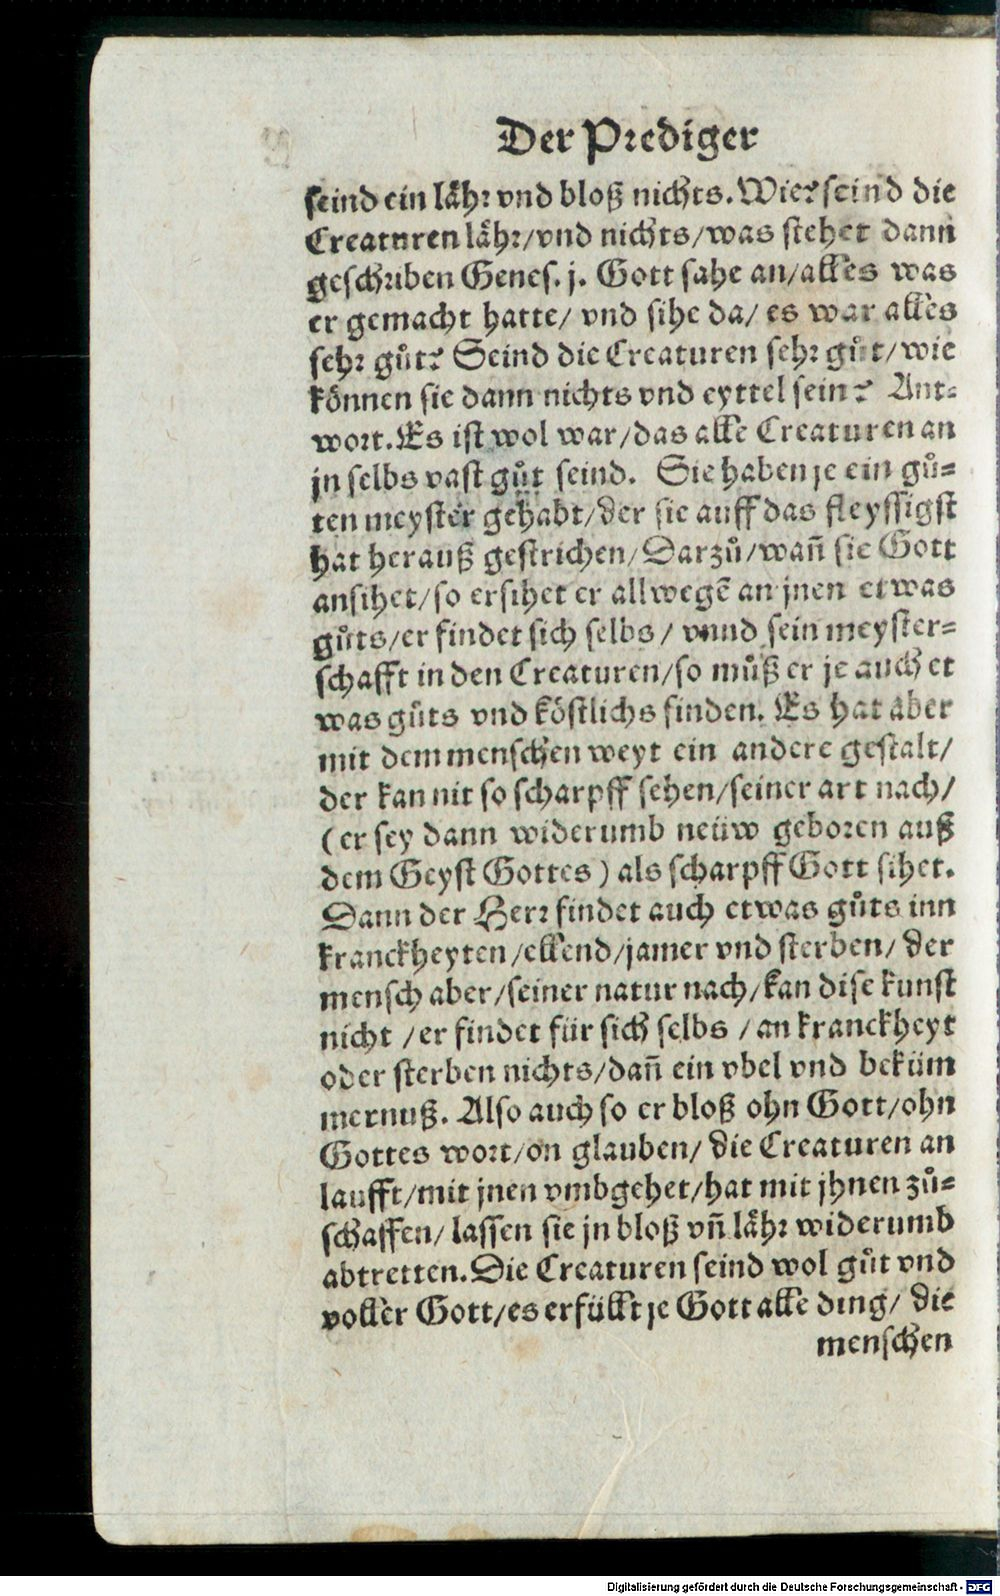 Der Prediger
seind ein lähr vnd bloß nichts. Wie? seind die
Creaturen lähr/vnd nichts/was stehet dann
geschriben Genes. j. Gott sahe an/alles was
er gemacht hatte/ vnd sihe da/ es war alles
sehr gůt? Seind die Creaturen sehr gůt/wie
können sie dann nichts vnd eyttel sein? Ant⸗
wort. Es ist wol war/das alle Creaturen an
jn selbs vast gůt seind. Sie haben je ein gů⸗
ten meyster gehabt/der sie auff das fleyssigst
hat herauß gestrichen/Darzů/wañ sie Gott
ansihet/so ersihet er allwegẽ an jnen etwas
gůts/er findet sich selbs/ vnnd sein meyster⸗
schafft in den Creaturen/so můß er je auch et
was gůts vnd köstlichs finden. Es hat aber
mit dem menschen weyt ein andere gestalt/
der kan nit so scharpff sehen/seiner art nach/
(er sey dann widerumb neüw geboren auß
dem Geyst Gottes) als scharpff Gott sihet.
Dann der Herr findet auch etwas gůts inn
kranckheyten/ellend/jamer vnd sterben/ der
mensch aber/seiner natur nach/kan dise kunst
nicht /er findet für sich selbs /an kranckheyt
oder sterben nichts/dañ ein vbel vnd beküm
mernuß. Also auch so er bloß ohn Gott/ohn
Gottes wort/on glauben/ die Creaturen an
laufft/mit jnen vmbgehet/hat mit jhnen zů⸗
schaffen/ lassen sie jn bloß vñ lähr widerumb
abtretten. Die Creaturen seind wol gůt vnd
voller Gott/es erfüllt je Gott alle ding/ die
menschen
Digitalisierung gefördert durch die Deutsche Forschungsgemeinschaft - DFG